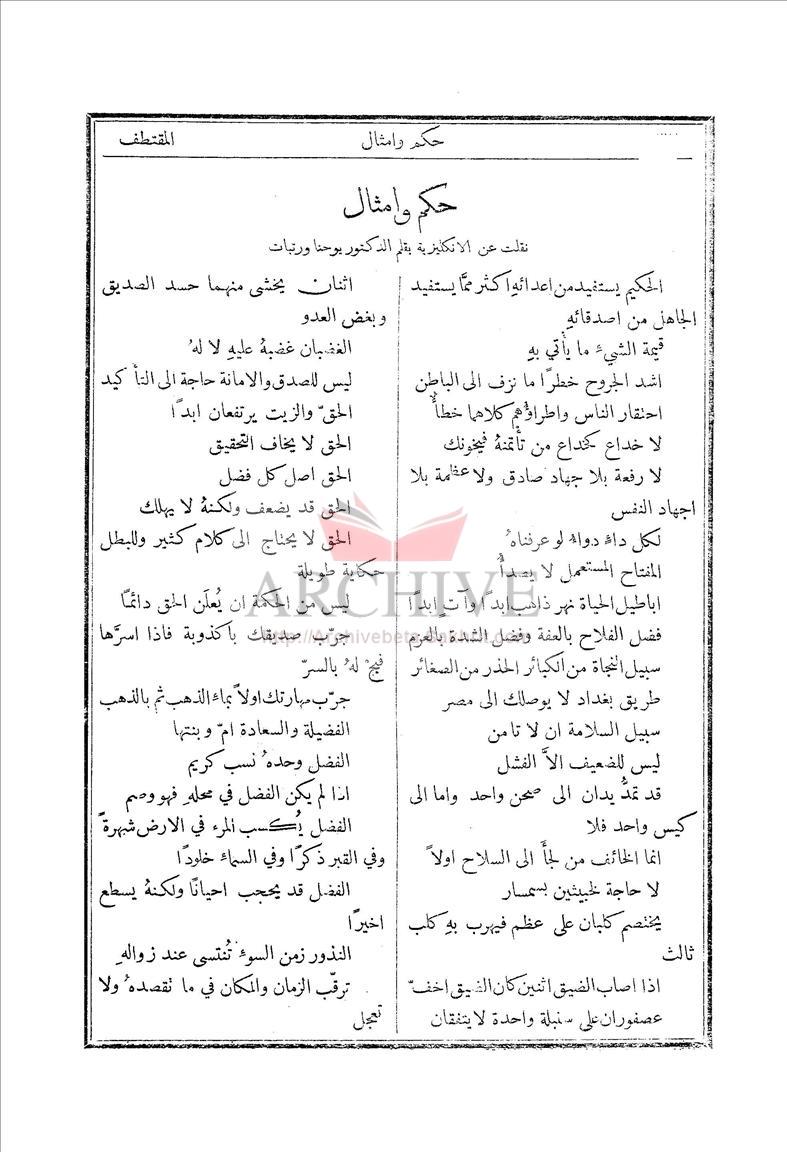 حكم وامثال
المقتطف
حكم وامثال
نقلت عن الانكليزية بقلم الدكتور يوحنا ورتبات
الحكيم يستفيد من اعدائهِ اكثر ممَّا يستفيد
الجاهل من اصدقائهِ
قيمة الشيء ما يأتي بهِ
اشد الجروح خطرًا ما نزف الى الباطن
احتقار الناس واطراؤهم كلاهما خطأٌ
لا خداع كخداع من تأتمنهُ فيخونك
لا رفعة بلا جهاد صادق ولا عظمة بلا
اجهاد النفس
لكل داءٍ دواءٌ لو عرفناهُ
المفتاح المستعمل لا يصدأُ
اباطيل الحياة نهر ذاهب ابدًا وآتٍ ابدًا
فضل الفلاح بالعفة وفضل الشدة بالعزم
سبيل النجاة من الكبائر الحذر من الصغائر
طريق بغداد لا يوصلك الى مصر
سبيل السلامة ان لا تامن
ليس للضعيف الاَّ الفشل
قد تمدُّ يدان الى صحن واحد واما الى
كيس واحد فلا
انما الخائف من لجأَ الى السلاح اولاً
لا حاجة لخبيثين بسمسار
يختصم كلبان على عظم فيهرب بهِ كلب
ثالث
اذا اصاب الضيق اثنين كان الضيق اخفّ
عصفوران على سنبلة واحدة لا يتفقان
اثنان يخشى منهما حسد الصديق
وبغض العدو
الغضبان غضبهُ عليهِ لا لهُ
ليس للصدق والامانة حاجة الى التأكيد
الحقّ والزيت يرتفعان ابدًا
الحق لا يخاف التحقيق
الحق اصل كل فضل
الحق قد يضعف ولكنهُ لا يهلك
الحق لا يحتاج الى كلام كثير وللبطل
حكاية طويلة
ليس من الحكمة ان يُعلَن الحق دائمًا
جرّب صديقك باكذوبة فاذا اسرَّها
فبُحْ لهُ بالسرّ
جرّب مهارتك اولاً بماء الذهب ثم بالذهب
الفضيلة والسعادة امّ وبنتها
الفضل وحدهُ نسب كريم
اذا لم يكن الفضل في محلهِ فهو وصم
الفضل يُكسب المرء في الارض شهرةً
وفي القبر ذكرًا وفي السماء خلودًا
الفضل قد يحجب احيانًا ولكنهُ يسطع
اخيرًا
النذور زمن السوء تُنتسى عند زوالهِ
ترقّب الزمان والمكان في ما تقصدهُ ولا
تعجل
ARCHIVE